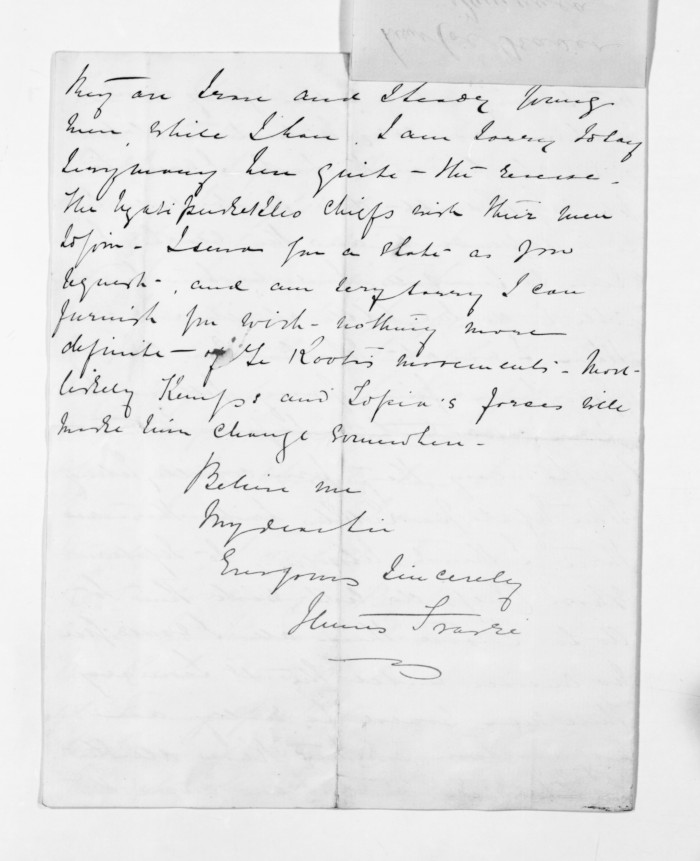 They are and steady young
men, while I have, I am sorry to say
very many here quite - the reverse -
The chiefs wish their men
to join - I send you a state as you
request -, and am very sorry I can
furnish you with - nothing more
definite - of Te Kooti's movements - Most
likely Kemp's and Topia's forces will
make him change somewhere -
Believe me
My dear Sir
Ever yours sincerely
James Fraser